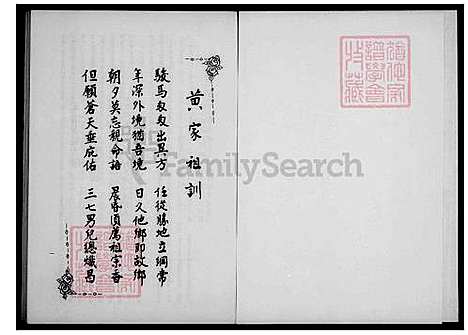 黄家祖訓
駿馬匆匆出異方 任從勝地立綱常
年深外境猶吾境 日久他鄉即故鄉
朝夕莫忘親命語 晨昏須薦祖宗香
但願蒼天垂庇佑 三七男兒總熾昌
FamilySearch